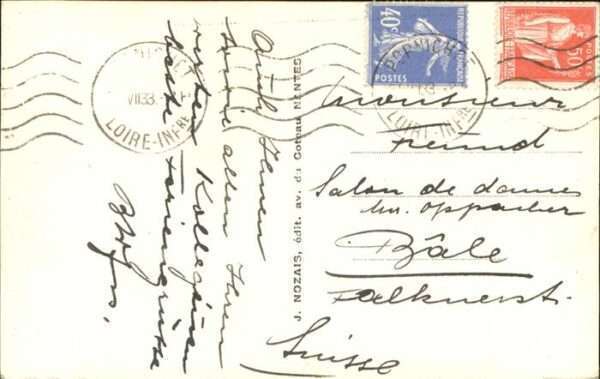 PORNICHET
VII 33
LOIRE-INFRE
REPUBLIQUE FRANÇAISE
40c
POSTES
50c
POSTES
PORNICHET
33
LOIRE-INFRE
Auch Ihnen
sowie allen Ihren
werten Kolleginnen
beste Feriengrüsse
J. NOZAIS, édit. av. du Coteau NANTES
Monsieur
Freund
Salon de dames
Bâle
Falknerst.
Suisse